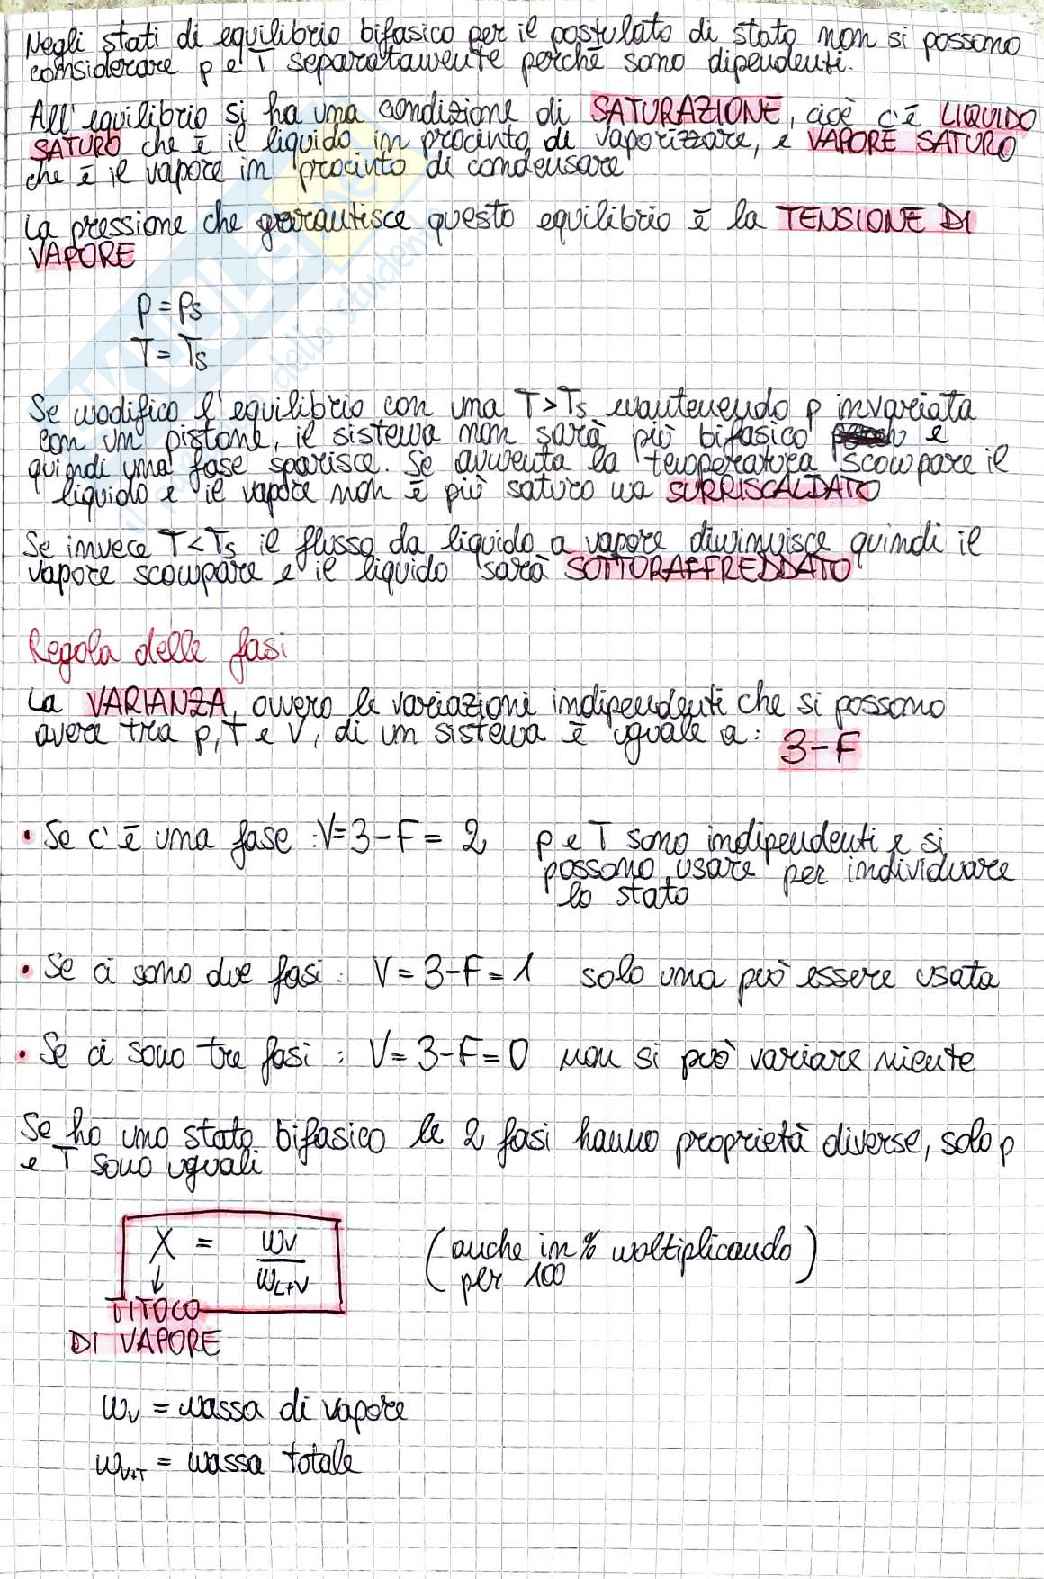 Negli stati di equilibrio bifasico per il postulato di stato non si possono
considerare p e T separatamente perchè sono dipendenti.
All'equilibrio si ha una condizione di SATURAZIONE, cioè c'è LIQUIDO
SATURO che è il liquido in procinto di vaporizzare, e VAPORE SATURO
che è il vapore in procinto di condensare
La pressione che garantisce questo equilibrio è la TENSIONE DI
VAPORE
p = ps
T = Ts
Se modifico l'equilibrio con una T > Ts mantenendo p invariata
con un pistone, il sistema non sarà più bifasico e
quindi una fase sparisce. Se aumenta la temperatura scompare il
liquido e il vapore non è più saturo ma SURRISCALDATO
Se invece T < Ts il flusso da liquido a vapore diminuisce quindi il
vapore scompare e il liquido sarà SOTTORAFFREDDATO
Regola delle fasi
La VARIANZA, ovvero le variazioni indipendenti che si possono
avere tra p, T e V, di un sistema è uguale a: 3-F
• Se c'è una fase : V=3-F = 2 p e T sono indipendenti e si
possono usare per individuare
lo stato
• Se ci sono due fasi : V = 3-F = 1 solo una può essere usata
• Se ci sono tre fasi : V = 3-F = 0 non si può variare niente
Se ho uno stato bifasico le 2 fasi hanno proprietà diverse, solo p
e T sono uguali
X = mv / mL+V (anche in % moltiplicando
per 100)
↓
TITOLO
DI VAPORE
mv = massa di vapore
mv+T = massa totale